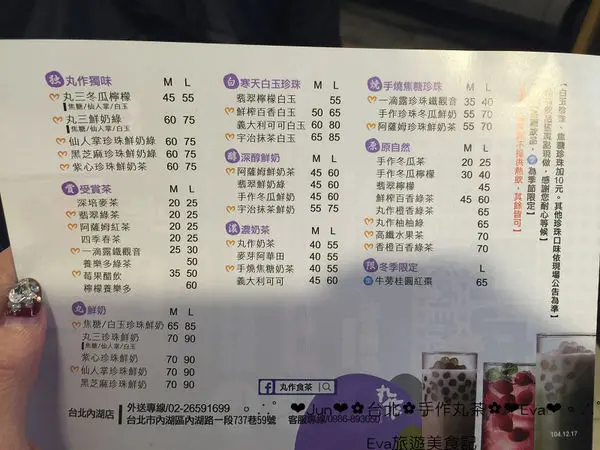 獨 丸作獨味 M L
丸三冬瓜檸檬 45 55
焦糖/仙人掌/白玉
丸三鮮奶綠 60 75
焦糖/仙人掌/白玉
仙人掌珍珠鮮奶綠 60 75
黑芝麻珍珠鮮奶綠 60 75
紫心珍珠鮮奶茶 60 75
賞 受賞茶 M L
深培麥茶 20 25
翡翠綠茶 20 25
阿薩姆紅茶 20 25
四季春茶 20 25
一滴露珍珠鐵觀音 25 30
養樂多綠茶 50
莓果醋飲 35 50
檸檬養樂多 60
丸 鮮奶 M L
焦糖/白玉珍珠鮮奶 65 85
丸三珍珠鮮奶 70 90
焦糖/仙人掌/白玉
紫心珍珠鮮奶 70 90
仙人掌珍珠鮮奶 70 90
黑芝麻珍珠鮮奶 70 90
白 寒天白玉珍珠 M L
翡翠檸檬白玉 55
鮮榨百香白玉 50 65
義大利可可白玉 60 80
宇治抹茶白玉 65 85
醇 深醇鮮奶 M L
阿薩姆鮮奶茶 45 60
翡翠鮮奶綠 45 60
手作冬瓜鮮奶 45 60
宇治抹茶鮮奶 55 75
濃 濃奶茶 M L
丸作奶茶 40 55
麥芽阿華田 40 55
手燒焦糖奶茶 40 55
義大利可可 45 60
燒 手燒焦糖珍珠 M L
一滴露珍珠鐵觀音 35 40
手作珍珠冬瓜鮮奶 55 70
阿薩姆珍珠鮮奶茶 55 70
原 原自然 M L
手作冬瓜茶 20 25
手作冬瓜檸檬 30 40
翡翠檸檬 45
鮮榨百香綠茶 45 60
丸作橙香綠茶 65
丸作柚柚綠 65
高纖水果茶 70
香橙百香綠茶 70
限 冬季限定 L
牛蒡桂圓紅棗 65
【白玉珍珠、焦糖珍珠加10元。其他珍珠口味依現場公告為準】
為季節限定】
丸作食茶
丸作
台北內湖店
外送專線/02-26591699
台北市內湖區內湖路一段737巷59號 客服專線/0986-893050
104.12.17
❤Jun❤✿台北✿手作丸茶✿❤Eva❤
Eva旅遊美食記